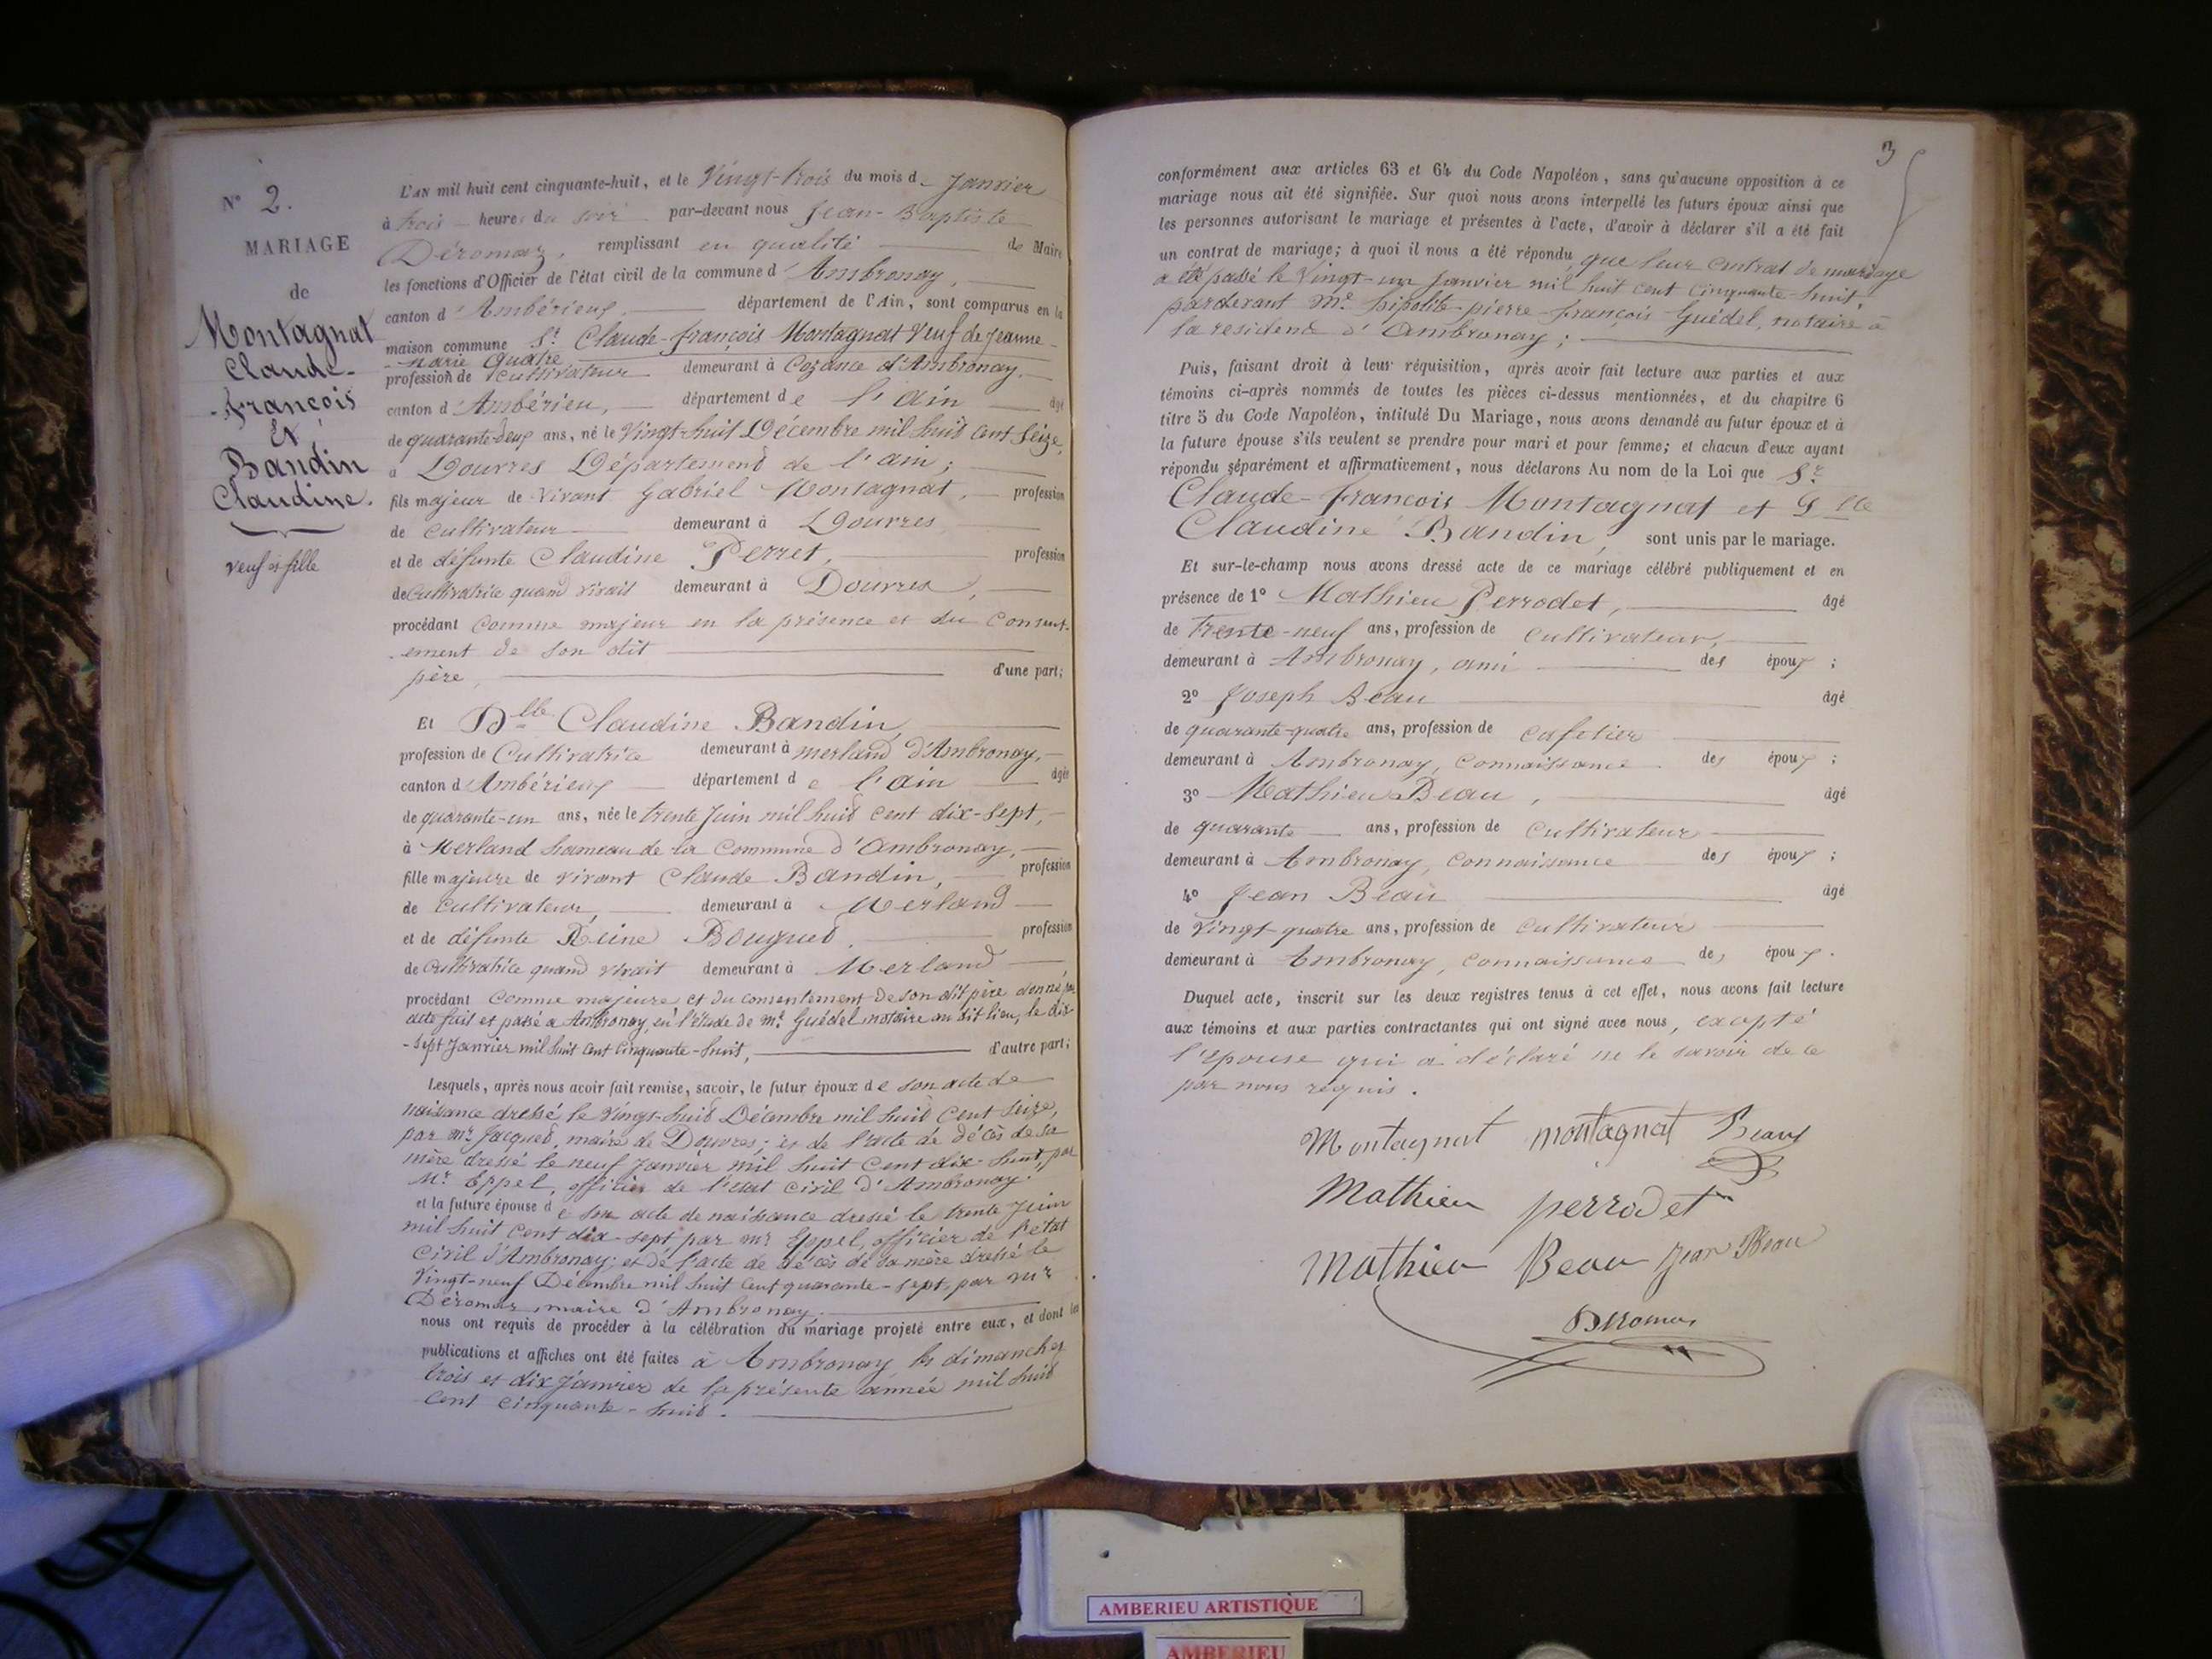 N° 2.
MARIAGE
de
Montagnat
Claude-
-françois
Et
Bandin
Claudine.
veuf et fille
L'AN mil huit cent cinquante-huit, et le Vingt-trois du mois de Janvier
à trois heures du soir par-devant nous Jean-Baptiste
Déromas, remplissant en qualité de Maire
les fonctions d'Officier de l'état civil de la commune d'Ambronay,
canton d'Ambérieux, département de l'Ain, sont comparus en la
maison commune Sr. Claude-françois Montagnat Veuf de Jeanne-
-Marie Quatre
profession de Cultivateur demeurant à Cozance d'Ambronay.
canton d'Ambérieu, département de l'ain âgé
de quarante-deux ans, né le Vingt-huit Décembre mil huit cent seize,
à Douvres Département de l'ain;
fils majeur de vivant Gabriel Montagnat, profession
de Cultivateur demeurant à Douvres
et de défunte Claudine Perret, profession
de Cultivatrice quand vivait demeurant à Douvres,
procédant Comme majeur en la présence et du Consent-
-ement de son dit
père, d'une part;
Et Dlle Claudine Bandin,
profession de Cultivatrice demeurant à merland d'Ambronay,
canton d'Ambérieux département de l'ain âgée
de quarante-un ans, née le trente Juin mil huit cent dix-sept,
à Merland hameau de la Commune d'Ambronay,
fille majeure de vivant Claude Bandin, profession
de Cultivateur, demeurant à Merland
et de défunte Reine Bouguet, profession
de Cultivatrice quand vivait demeurant à Merland
procédant Comme majeure et du consentement de son dit père donné par
acte fait et passé à Ambronay, en l'étude de me. Guédel notaire au dit lieu, le dix
-sept Janvier mil huit cent cinquante-huit, d'autre part;
Lesquels, après nous avoir fait remise, savoir, le futur époux de son acte de
naissance dressé le Vingt-huit Décembre mil huit Cent seize,
par mr. Jacquet, maire de Douvres; et de l'acte de décès de sa
mère dressé le neuf Janvier mil huit cent dix-huit, par
Mr. Eppel, officier de l'état civil d'Ambronay.
et la future épouse de son acte de naissance dressé le trente Juin
mil huit Cent dix-sept par mr Eppel, officier de l'état
civil d'Ambronay; et de l'acte de décès de sa mère dressé le
Vingt-neuf Décembre mil huit Cent quarante-sept, par mr
Déromas, maire d'Ambronay.
nous ont requis de procéder à la célébration du mariage projeté entre eux, et dont les
publications et affiches ont été faites à Ambronay les dimanches
trois et dix Janvier de la présente année mil huit
cent cinquante-huit.
3
conformément aux articles 63 et 64 du Code Napoléon, sans qu'aucune opposition à ce
mariage nous ait été signifiée. Sur quoi nous avons interpellé les futurs époux ainsi que
les personnes autorisant le mariage et présentes à l'acte, d'avoir à déclarer s'il a été fait
un contrat de mariage; à quoi il nous a été répondu que leur contrat de mariage
a été passé le Vingt-un Janvier mil huit cent cinquante-huit,
pardevant Me. hipolite-pierre-françois Guédel, notaire à
la résidence d'Ambronay;
Puis, faisant droit à leur réquisition, après avoir fait lecture aux parties et aux
témoins ci-après nommés de toutes les pièces ci-dessus mentionnées, et du chapitre 6
titre 5 du Code Napoléon, intitulé Du Mariage, nous avons demandé au futur époux et à
la future épouse s'ils veulent se prendre pour mari et pour femme; et chacun d'eux ayant
répondu séparément et affirmativement, nous déclarons Au nom de la Loi que Sr.
Claude-françois Montagnat et Dlle
Claudine Bandin, sont unis par le mariage.
Et sur-le-champ nous avons dressé acte de ce mariage célébré publiquement et en
présence de 1° Mathieu Perrodet, âgé
de trente-neuf ans, profession de cultivateur,
demeurant à Ambronay, ami des époux;
2° Joseph Beau âgé
de quarante-quatre ans, profession de cafetier
demeurant à Ambronay, connaissance des époux;
3° Mathieu Beau, âgé
de quarante ans, profession de Cultivateur
demeurant à Ambronay, connaissance des époux;
4° Jean Beau âgé
de vingt-quatre ans, profession de Cultivateur
demeurant à Ambronay, connaissance des époux.
Duquel acte, inscrit sur les deux registres tenus à cet effet, nous avons fait lecture
aux témoins et aux parties contractantes qui ont signé avec nous, excepté
l'épouse qui a déclaré ne le savoir de ce
par nous requis.
Montagnat montagnat Beau
Mathieu perrodet
Mathieu Beau Jean Beau
Déromas
AMBERIEU ARTISTIQUE
AMBERIEU